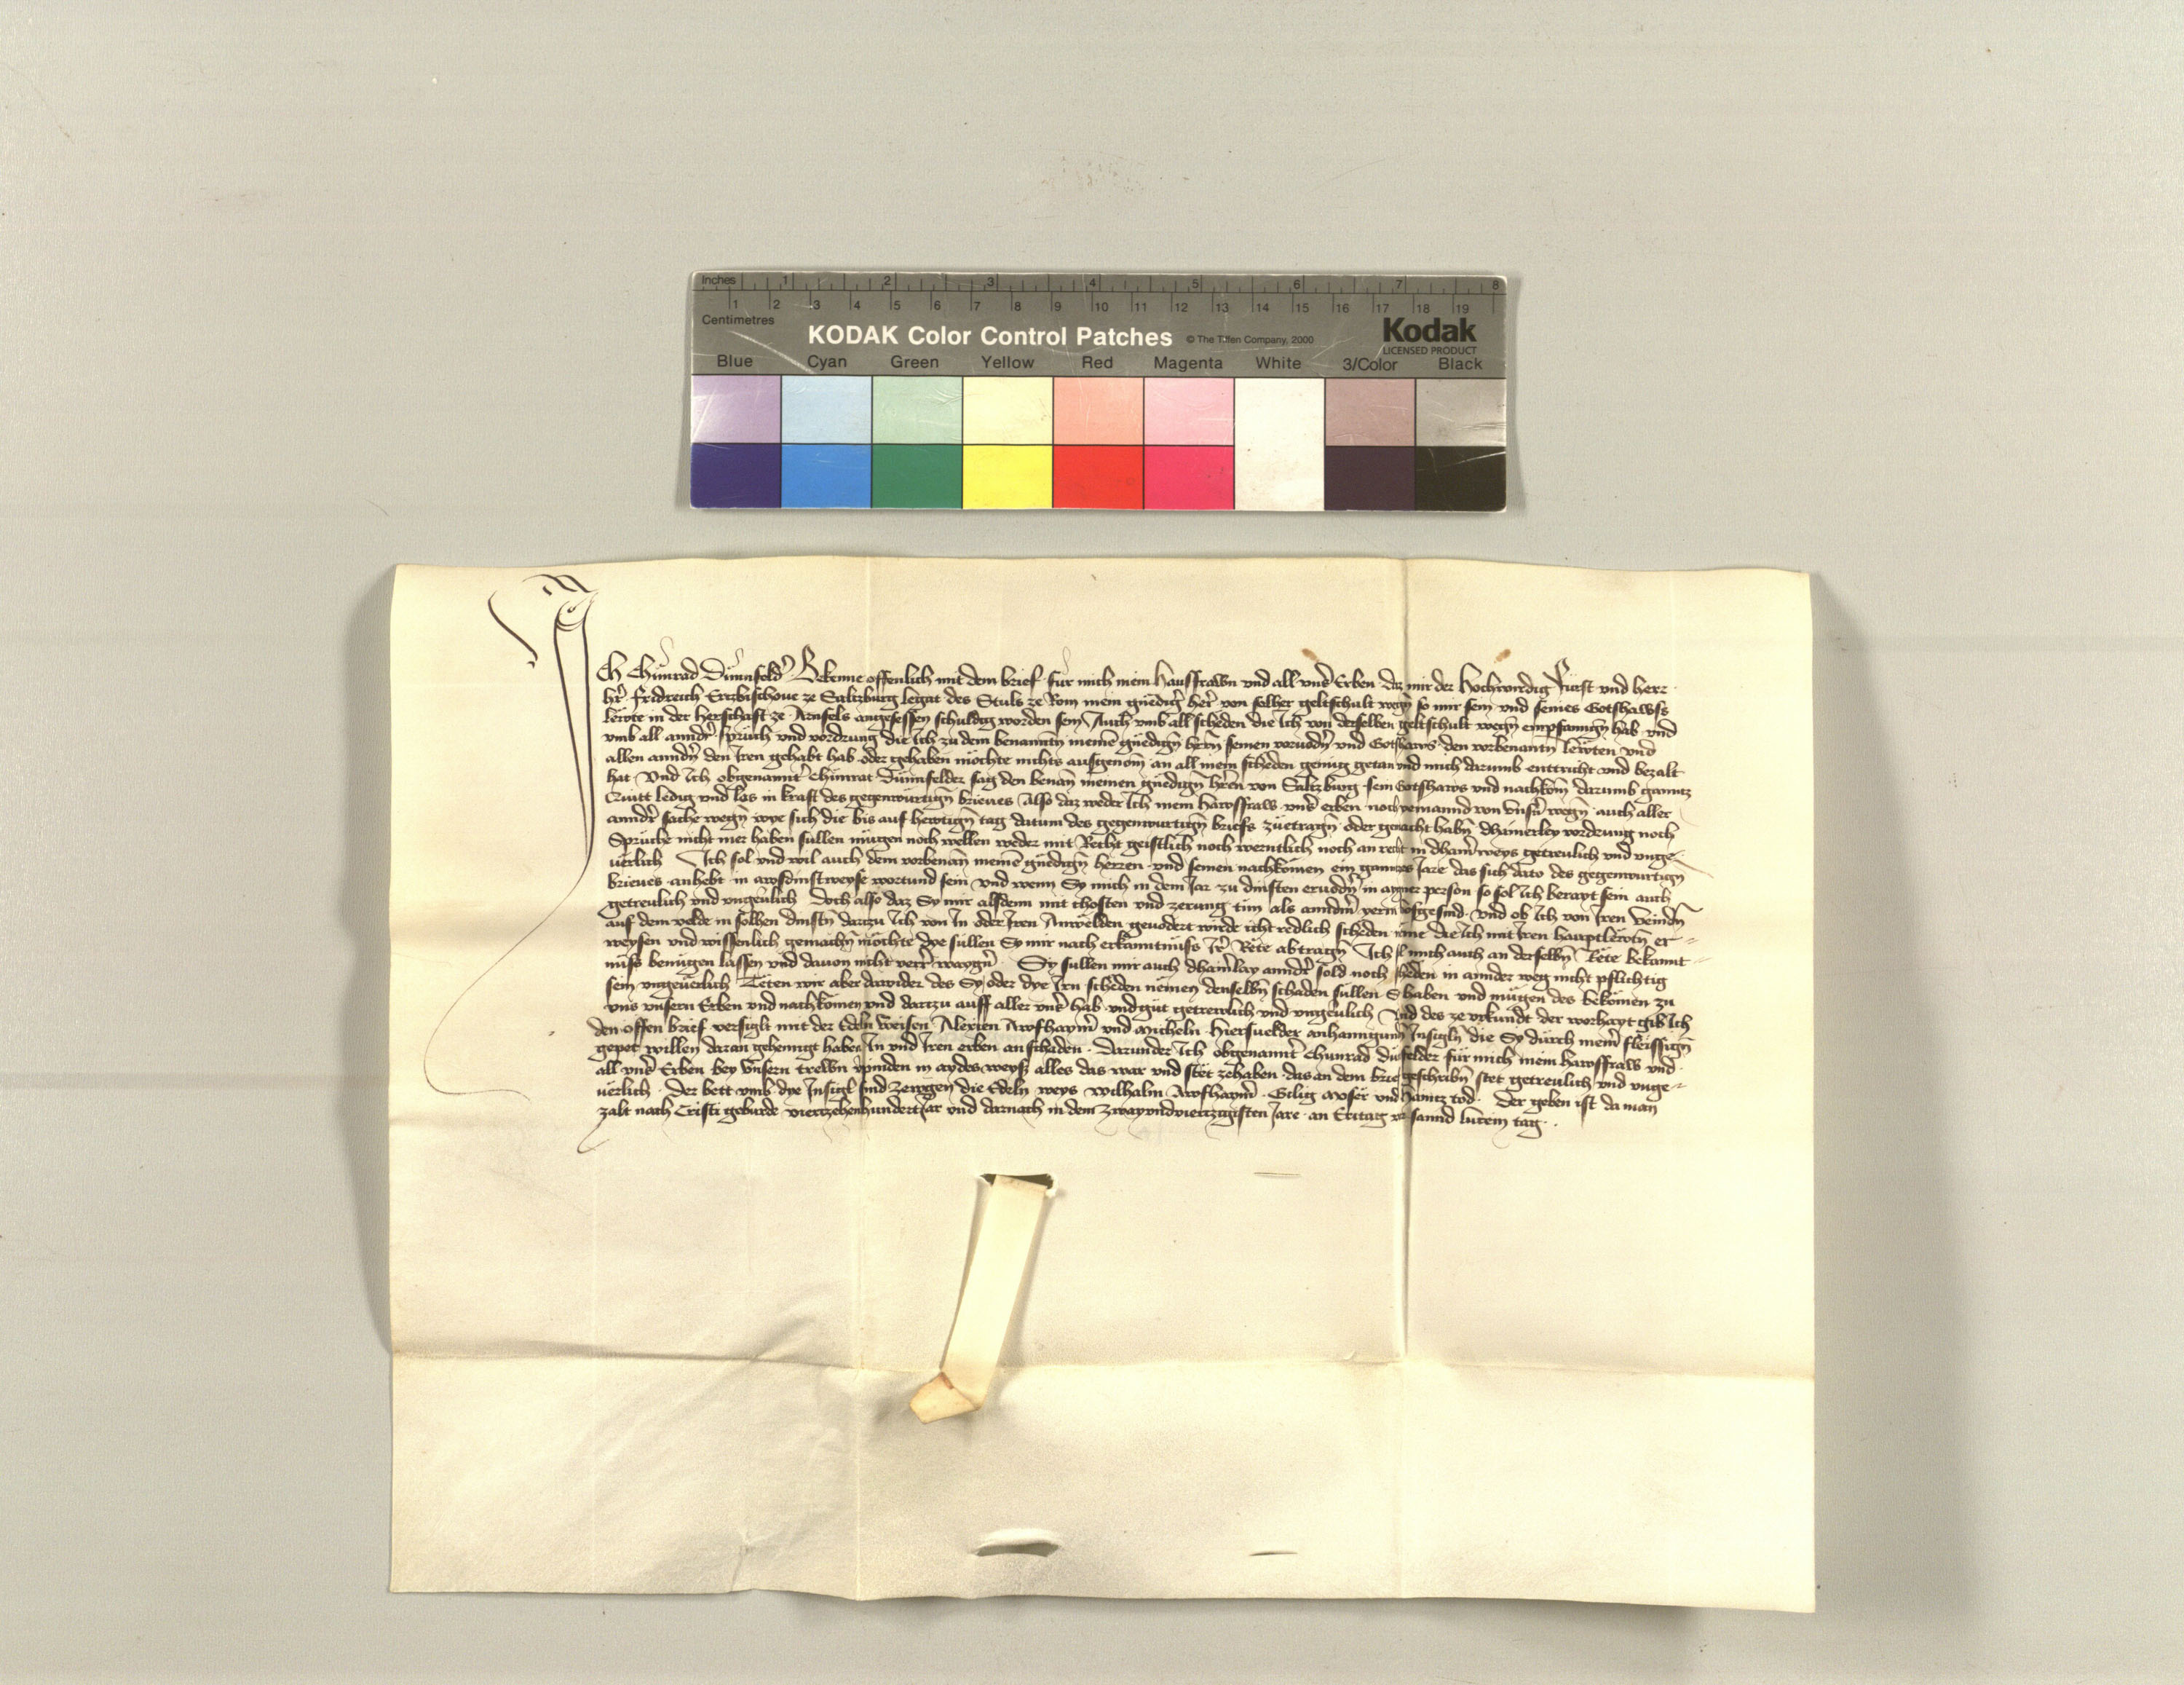 Inches 1 2 3 4 5 6 7 8
1 2 3 4 5 6 7 8 9 10 11 12 13 14 15 16 17 18 19
Centimetres
KODAK Color Control Patches © The Tiffen Company, 2000 Kodak
LICENSED PRODUCT
Blue Cyan Green Yellow Red Magenta White 3/Color Black
Ich Chunrad Dümfeld Bekenne offenlich mit dem brief für mich mein hausfrawn vnd all vns Erben daz mir der Hochwirdig Fürst vnd herr
her fridreich Ertzbischoue ze Saltzburg legat des Stuls ze Rom mein gnedig her von solher geltschult wegn so mir sein vnd seines Gotshawss
lewte in der herschaft ze Arnfels angesessen schuldig worden sein Auch vmb all scheden die Ich von derselben geltschult wegn empfanngn hab vnd
vmb all annder sprüch vnd vordrung die Ich zu dem benanntn meinē gnedign herrn seinen vorvodern vnd Gotshaws den vorbenantn lewten vnd
allen anndern den Iren gehabt hab oder gehaben möchte nichts ausgenom̄ an all mein scheden genug getan vnd mich darumb enttricht vnd bezalt
hat Vnd Ich obgenannt Chünrat Dümfelder sag den benan̄ meinen gnedign hern von Saltzburg sein Gotshaws vnd nachkom̄ darumb ganntz
Quitt ledig vnd los in kraft des gegenwürtign brieues Also daz weder Ich mein hawsfraw vns erben noch yemannd von vnsern wegn auch aller
annder sache wegn wye sich die bis auf hewtign tag datum des gegenwurtign briefs zuetragn oder gemacht habn dhainerley vordrung noch
Sprüche nicht mer haben sullen mügen noch wellen weder mit Recht geistlich noch werntlich noch an recht in dhain weys getreulich vnd vnge-
uerlich Ich sol vnd wil auch dem vorbenan̄ meinē gnedign herren vnd seinen nachkomen ein ganntzes Jare das sich dato des gegenwurtign
brieues anhebt in awsdinstweyse wortund sein vnd wenn Sy mich in dem Jar zu dinsten eruodern in aygner person so sol Ich berayt sein auch
getreulich vnd vngeuerlich doch also daz Sy mir alsdenn mit chosten vnd zerung tun als anndern irem hofgesind vnd ob Ich von Iren veindn
auf dem velde in solhen dinstn darzu Ich von In oder Iren Anwelden geuodert würde icht redlich scheden neme die Ich mit Iren hauptlewtn er-
weysen vnd wissenlich gemachn möchte dye sullen Sy mir nach erkanntnüss Irer Rete abtragn Ich sol mich auch an derselbn Rete bekannt-
nüss benügen lassen vnd dauon nicht verrer waygern Sy sullen mir auch dhainlay annder sold noch scheden in annder weg nicht pflichtig
sein vngeuerlich Teten wir aber dawider des Sy oder dye Irn scheden nemen denselbn schaden sullen Sy haben vnd mügen des bekömen zu
vns vnsern Erben vnd nachkömen vnd darzu auff aller vnser hab vnd gut getrewlich vnd vngeuerlich Vnd des ze vrkundt der worhayt gib Ich
den offen brief versiglt mit der Edeln weisen Alexien Awfhaymer vnd micheln hiersuelder anhanngunden Insigln die Sy durch meiner fleissign
gepet willen daran gehenngt haben In vnd Iren erben an schaden Darunder Ich obgenannt Chunrad dümfelder für mich mein hawsfraw vnd
all vnser Erben bey vnsern trewn verpinden in aydes weys alles das war vnd stet zehaben das an dem brief geschribn stet getreulich vnd vnge-
uerlich Der bett vmb dye Insigl sind zewgen die Edeln weys wilhalm Awfhaymer Gilig awser vnd hainitz tod Der geben ist da man
zalt nach Cristi geburde vierzehenhundert Jar vnd darnach in dem zwayvndvierzigisten Jare an Eritag vor sannd lucein tag